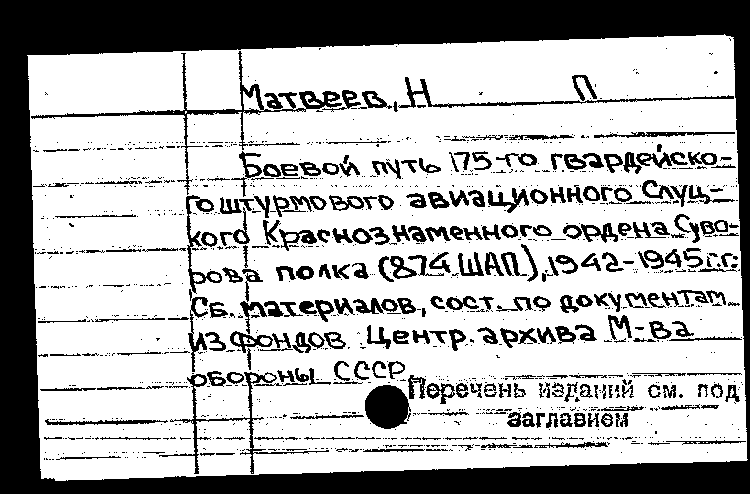 Матвеев, Н П
Боевой путь 175-го гвардейско-
го штурмового авиационного Слуц-
кого Краснознаменного ордена Суво-
рова полка (874 ШАП), 1942-1945 г.г.:
Сб. материалов, сост. по документам
из фондов Центр. архива М-ва
обороны СССР.
Перечень изданий см. под
заглавием